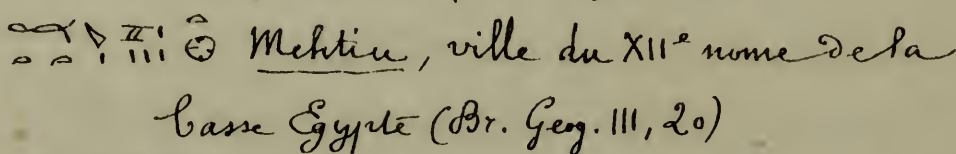 Mehtiu, ville du XIIe nome de la
basse Egypte (Br. Geog. III, 20)